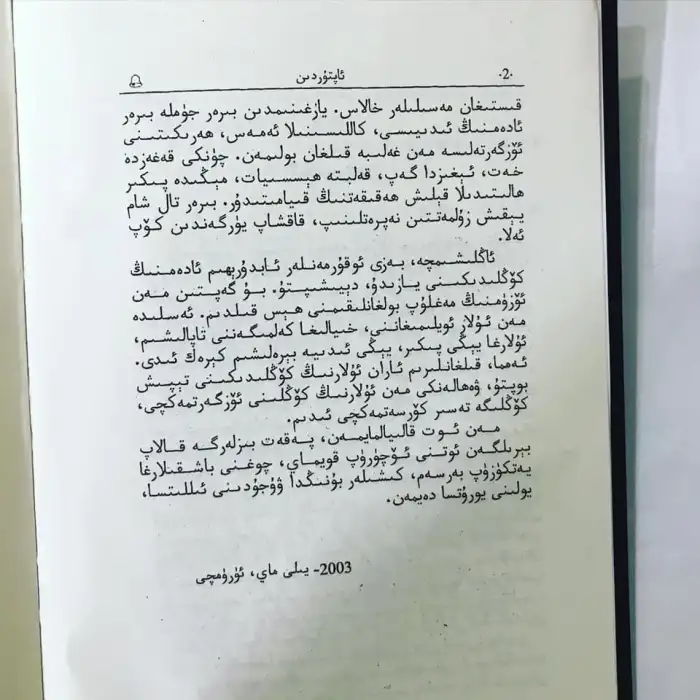 ·2· ئاپتۇردىن
قىستىغان مەسىلىلەر خالاس. يازغىنىمدىن بىرەر جۈملە بىرەر
ئادەمنىڭ ئىدىيىسى، كاللىسىنىلا ئەمەس، ھەرىكىتىنى
ئۆزگەرتەلىسە مەن غەلىبە قىلغان بولىمەن. چۈنكى قەغەزدە
خەت، ئېغىزدا گەپ، قەلبتە ھېسسىيات، مېڭىدە پىكىر
ھالىتىدىلا قېلىش ھەقىقەتنىڭ قىيامىتىدۇر. بىرەر تال شام
يېقىش زۇلمەتتىن نەپرەتلىنىپ، قاقشاپ يۈرگەندىن كۆپ
ئەلا.
ئاڭلىشىمچە، بەزى ئوقۇرمەنلەر ئابدۇرېھىم ئادەمنىڭ
كۆڭلىدىكىنى يازىدۇ، دېيىشىپتۇ. بۇ گەپتىن مەن
ئۆزۈمنىڭ مەغلۇپ بولغانلىقىمنى ھېس قىلدىم. ئەسلىدە
مەن ئۇلار ئويلىمىغاننى، خىيالىغا كەلمىگەننى تاپالىشىم،
ئۇلارغا يېڭى پىكىر، يېڭى ئىدىيە بېرەلىشىم كېرەك ئىدى.
ئەمما، قىلغانلىرىم ئاران ئۇلارنىڭ كۆڭلىدىكىنى تېپىش
بوپتۇ، ۋەھالەنكى مەن ئۇلارنىڭ كۆڭلىنى ئۆزگەرتمەكچى،
كۆڭلىگە تەسىر كۆرسەتمەكچى ئىدىم.
مەن ئوت قالىيالمايمەن، پەقەت بىزلەرگە قالاپ
بېرىلگەن ئوتنى ئۆچۈرۈپ قويماي، چوغنى باشقىلارغا
يەتكۈزۈپ بەرسەم، كىشىلەر بۇنىڭدا ۋۇجۇدىنى ئىللىتسا،
يولىنى يورۇتسا دەيمەن.
2003- يىلى ماي، ئۈرۈمچى